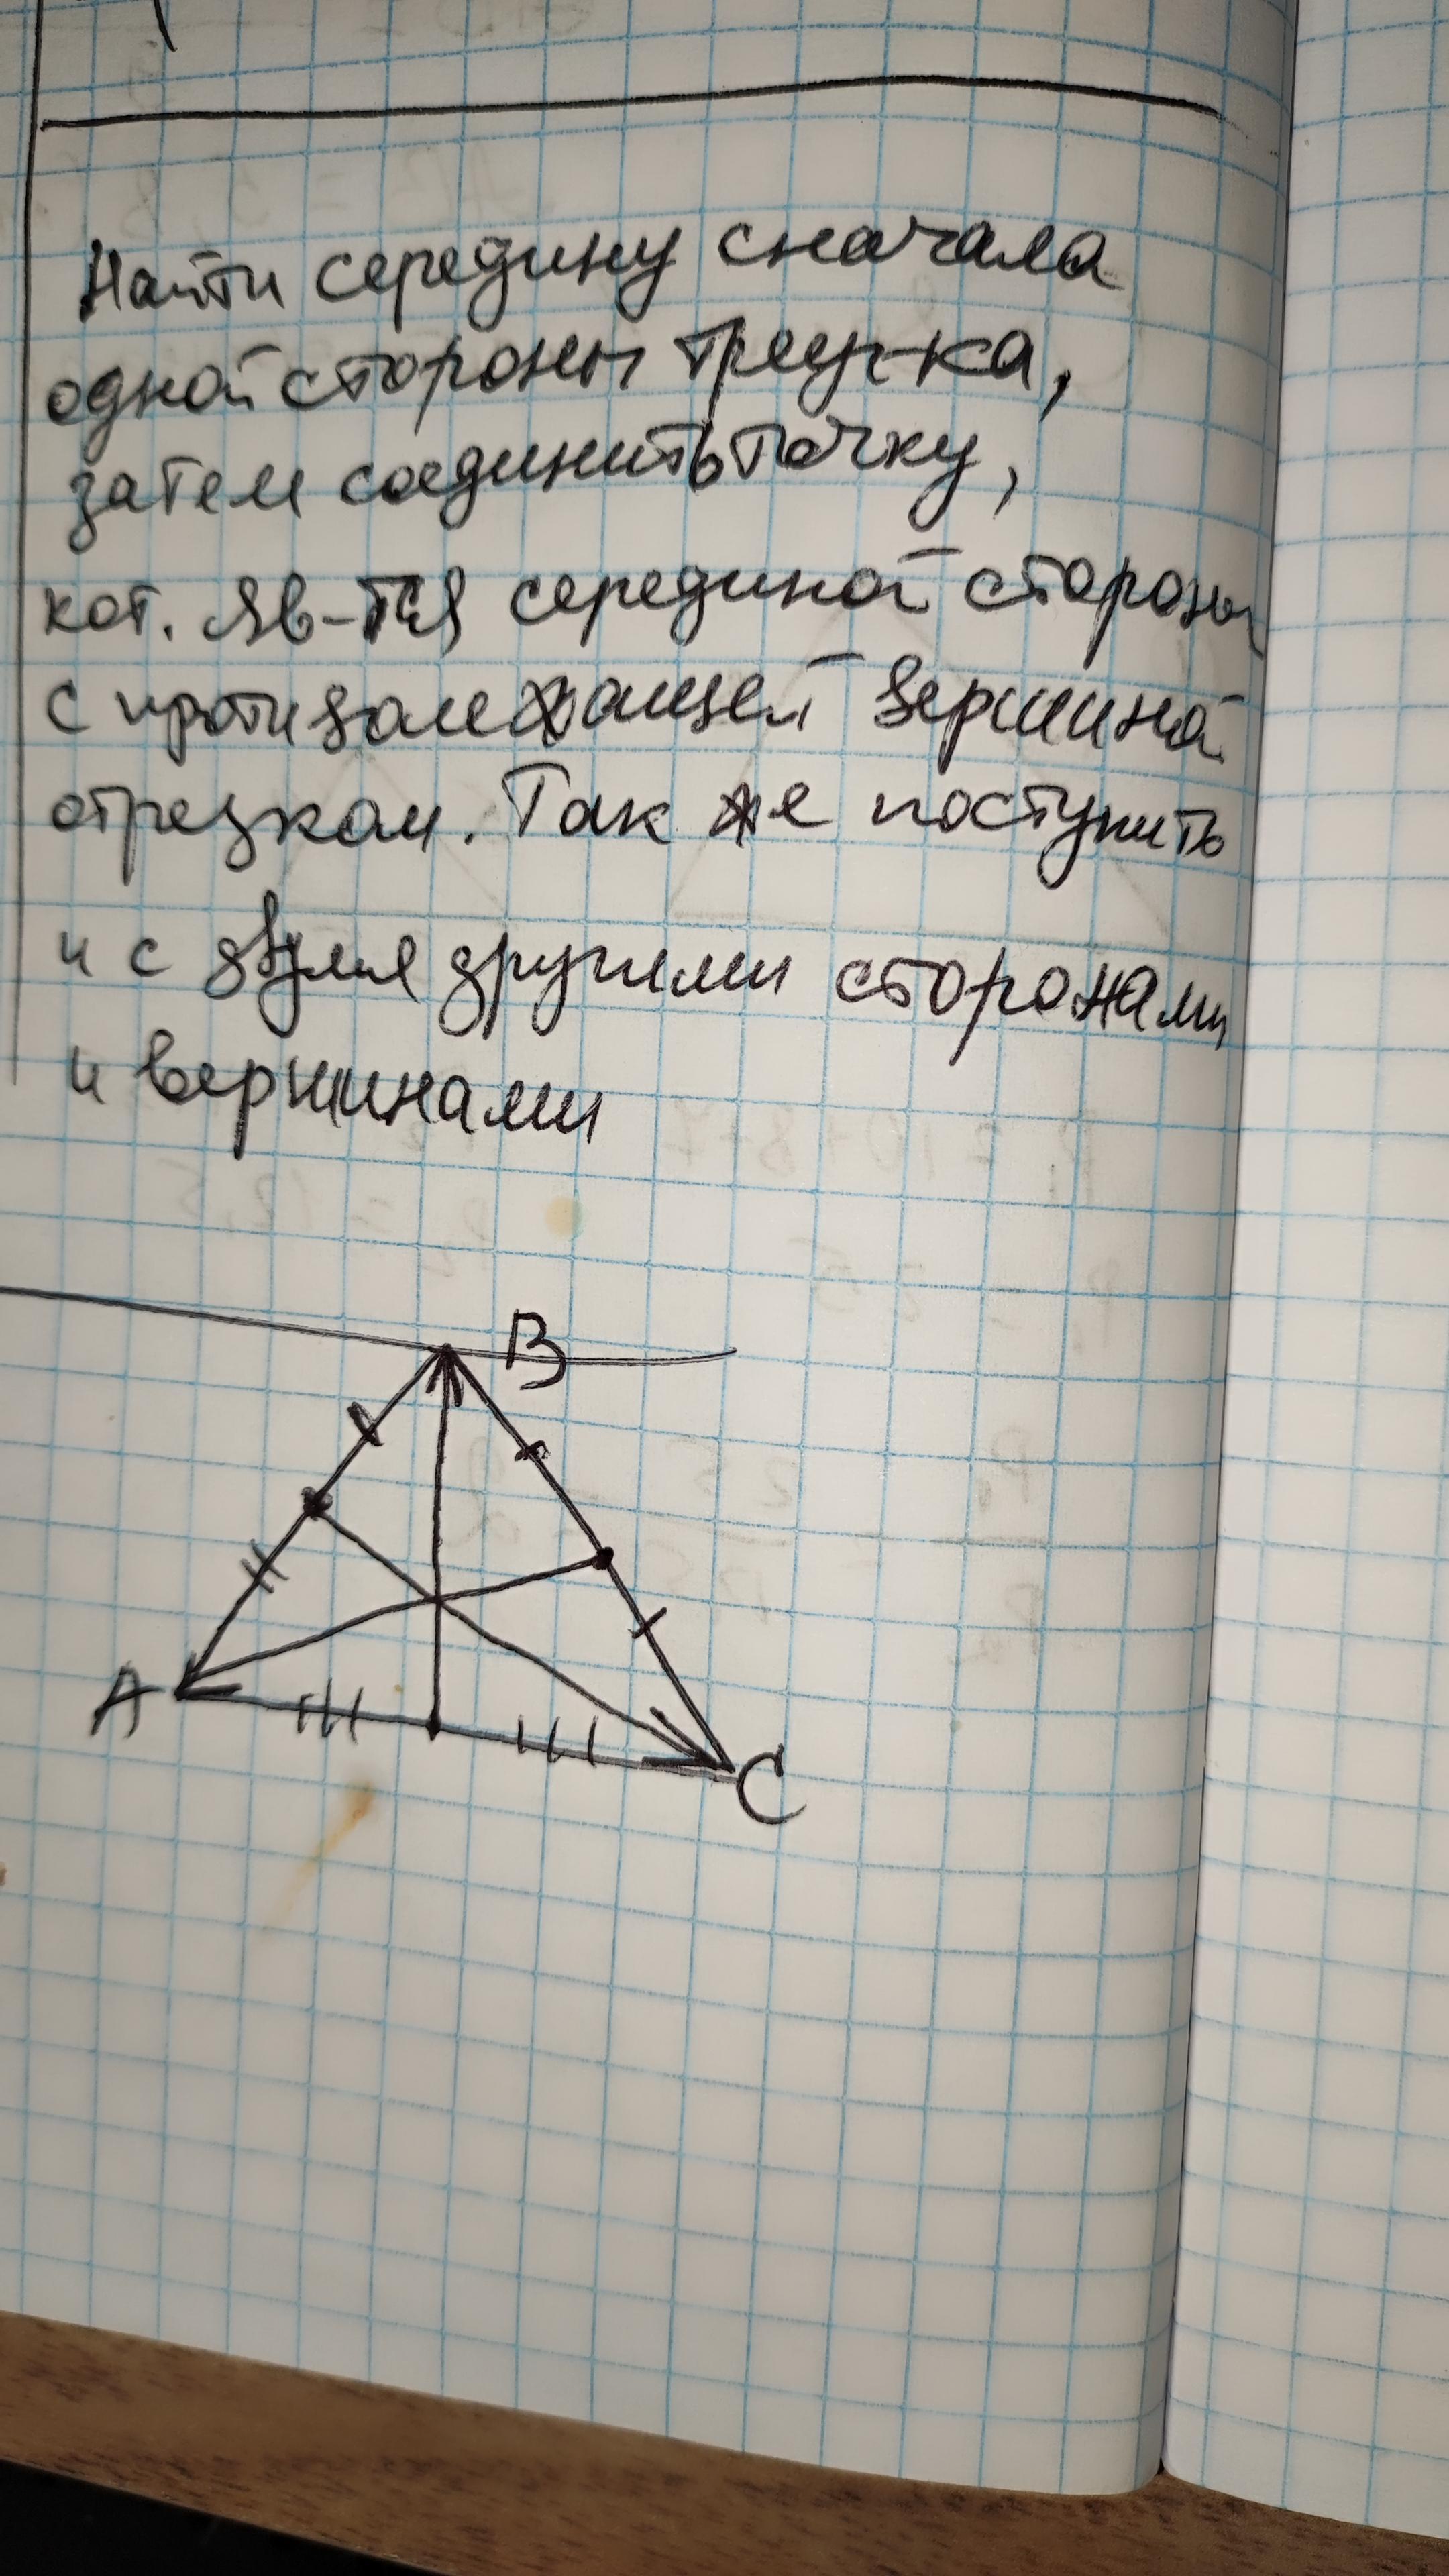 Найти середину сначала
одной стороны треуг-ка,
затем соединить точку,
кот. яв-тся серединой стороны
с противолежащей вершиной
отрезком. Так же поступить
и с двумя другими сторонами
и вершинами
B
A
C